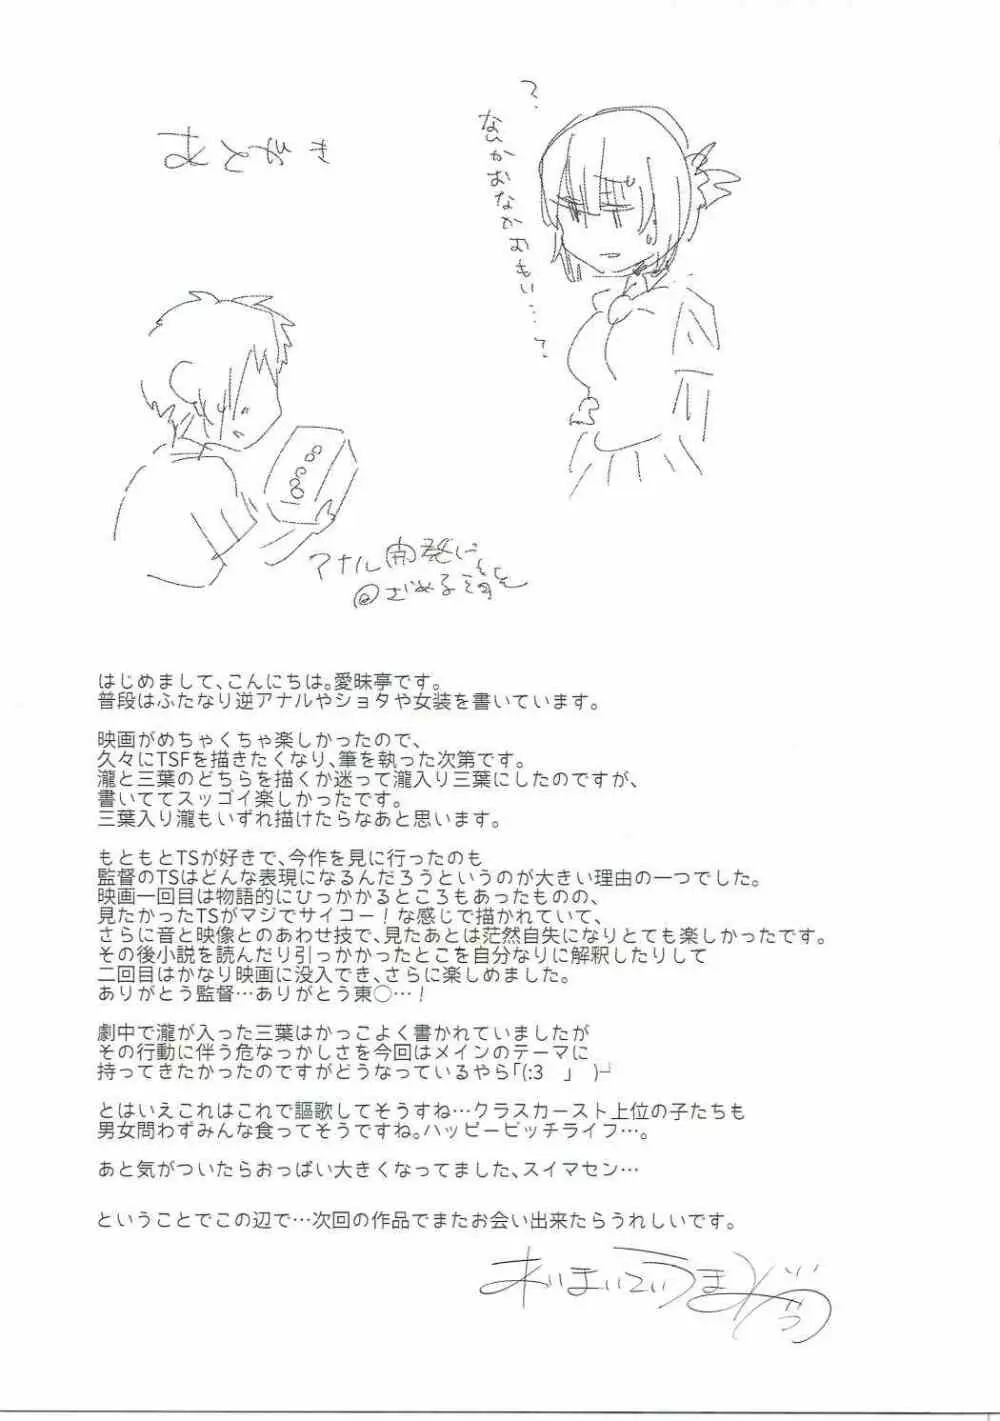 あとがき
?
なんかおなかおもい…?
アナル開発に
@ざめる瀧くん
はじめまして、こんにちは。愛昧亭です。
普段はふたなり逆アナルやショタや女装を書いています。
映画がめちゃくちゃ楽しかったので、
久々にTSFを描きたくなり、筆を執った次第です。
瀧と三葉のどちらを描くか迷って瀧入り三葉にしたのですが、
書いててスッゴイ楽しかったです。
三葉入り瀧もいずれ描けたらなあと思います。
もともとTSが好きで、今作を見に行ったのも
監督のTSはどんな表現になるんだろうというのが大きい理由の一つでした。
映画一回目は物語的にひっかかるところもあったものの、
見たかったTSがマジでサイコー！な感じで描かれていて、
さらに音と映像とのあわせ技で、見たあとは茫然自失になりとても楽しかったです。
その後小説を読んだり引っかかったとこを自分なりに解釈したりして
二回目はかなり映画に没入でき、さらに楽しめました。
ありがとう監督…ありがとう東◯…！
劇中で瀧が入った三葉はかっこよく書かれていましたが
その行動に伴う危なっかしさを今回はメインのテーマに
持ってきたかったのですがどうなっているやら｢(:3　｣　)┘
とはいえこれはこれで謳歌してそうすね…クラスカースト上位の子たちも
男女問わずみんな食ってそうですね。ハッピービッチライフ…。
あと気がついたらおっぱい大きくなってました、スイマセン…
ということでこの辺で…次回の作品でまたお会い出来たらうれしいです。
あいまいていうま